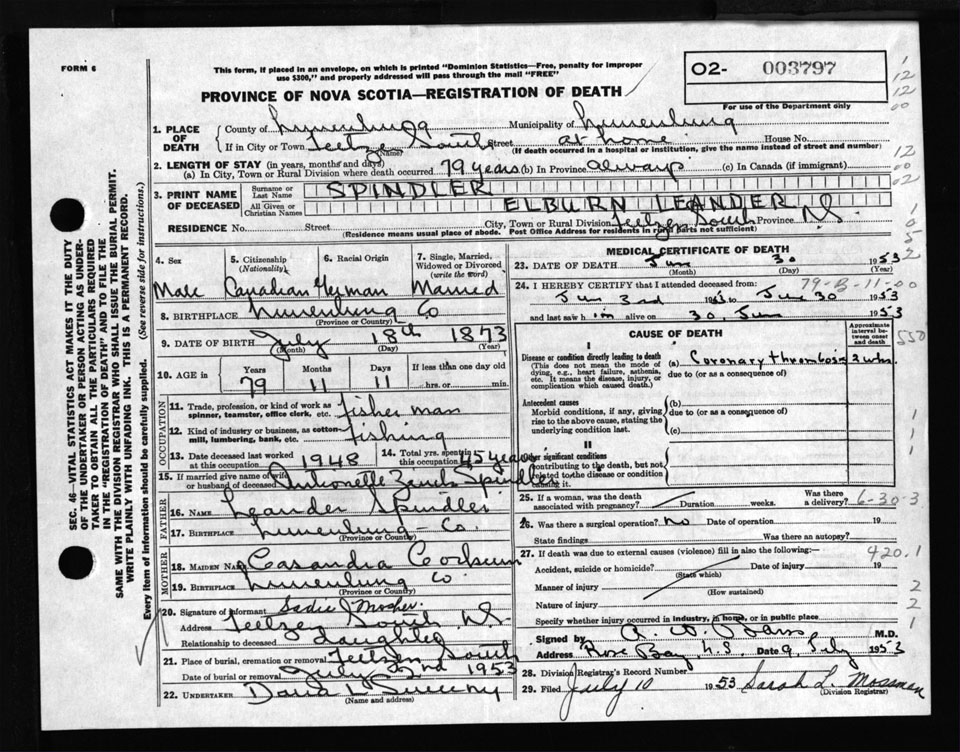 FORM 6
This form, if placed in an envelope, on which is printed "Dominion Statistics—Free, penalty for improper
use $300," and properly addressed will pass through the mail "FREE"
O2- 003797
For use of the Department only
PROVINCE OF NOVA SCOTIA—REGISTRATION OF DEATH
1. PLACE OF DEATH
County of Lunenburg Municipality of Lunenburg
If in City or Town Feltzen South Street at home House No.
(Name) (If death occurred in a hospital or institution, give the name instead of street and number)
2. LENGTH OF STAY (in years, months and days)
(a) In City, Town or Rural Division where death occurred 79 years (b) In Province always (c) In Canada (if immigrant)
3. PRINT NAME OF DECEASED
Surname or Last Name SPINDLER
All Given or Christian Names ELBURN LEANDER
RESIDENCE No. Street City, Town or Rural Division Feltzen South Province N.S.
(Residence means usual place of abode. Post Office Address for residents in rural parts not sufficient)
SEC. 46—VITAL STATISTICS ACT MAKES IT THE DUTY
OF THE UNDERTAKER OR PERSON ACTING AS UNDER-
TAKER TO OBTAIN ALL THE PARTICULARS REQUIRED
IN THE "REGISTRATION OF DEATH" AND TO FILE THE
SAME WITH THE DIVISION REGISTRAR WHO SHALL ISSUE THE BURIAL PERMIT.
WRITE PLAINLY WITH UNFADING INK. THIS IS A PERMANENT RECORD.
Every item of information should be carefully supplied. (See reverse side for instructions.)
4. Sex Male
5. Citizenship (Nationality) Canadian
6. Racial Origin German
7. Single, Married, Widowed or Divorced (write the word) Married
8. BIRTHPLACE Lunenburg Co
(Province or County)
9. DATE OF BIRTH July 18th 1873
(Month) (Day) (Year)
10. AGE in Years 79 Months 11 Days 11 If less than one day old
hrs. or min.
OCCUPATION
11. Trade, profession, or kind of work as spinner, teamster, office clerk, etc. fisher man
12. Kind of industry or business, as cotton-mill, lumbering, bank, etc. fishing
13. Date deceased last worked at this occupation 1948
14. Total yrs. spent in this occupation 45 years
15. If married give name of wife or husband of deceased Spindler
FATHER
16. NAME Leander Spindler
17. BIRTHPLACE Lunenburg Co.
(Province or County)
MOTHER
18. MAIDEN NAME Casandra
19. BIRTHPLACE Lunenburg Co.
(Province or County)
20. Signature of informant Sadie Mosher.
Address Feltzen South N.S.
Relationship to deceased daughter
21. Place of burial, cremation or removal Feltzen South
Date of burial or removal July 2nd 1953
22. UNDERTAKER L Sweeny
(Name and address)
MEDICAL CERTIFICATE OF DEATH
23. DATE OF DEATH Jun 30 1953
(Month) (Day) (Year)
79-B-11-00
24. I HEREBY CERTIFY that I attended deceased from:
Jun 3rd 1953 to Jun 30 1953
and last saw him alive on 30 Jun 1953
CAUSE OF DEATH
Approximate interval between onset and death
I
Disease or condition directly leading to death
(This does not mean the mode of dying, e.g., heart failure, asthenia, etc. It means the disease, injury, or complication which caused death.)
(a) Coronary thrombosis
due to (or as a consequence of)
Antecedent causes
Morbid conditions, if any, giving rise to the above cause, stating the underlying condition last.
(b)
due to (or as a consequence of)
(c)
II
Other significant conditions
contributing to the death, but not related to the disease or condition causing it.
25. If a woman, was the death associated with pregnancy? Duration weeks. Was there a delivery? 6-30-3
26. Was there a surgical operation? No Date of operation 19
State findings Was there an autopsy?
27. If death was due to external causes (violence) fill in also the following: 420.1
Accident, suicide or homicide? Date of injury 19
(State which)
Manner of injury
(How sustained)
Nature of injury
Specify whether injury occurred in industry, in home, or in public place
Signed by M.D.
Address Rose Bay, N.S. Date 9 July 1953
28. Division Registrar's Record Number
29. Filed July 10 1953 Sarah L. Mossman
(Division Registrar)